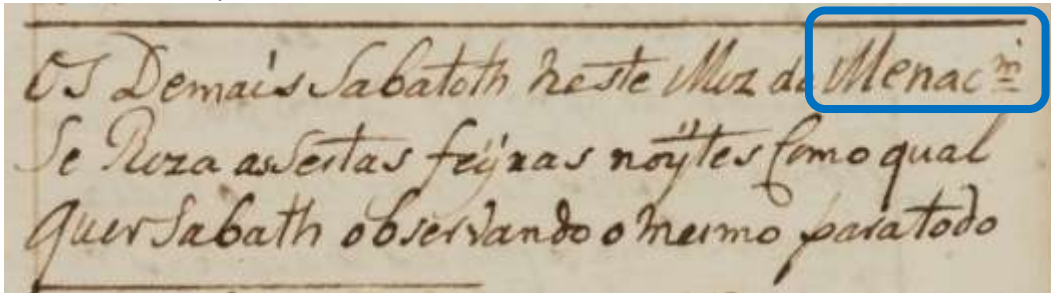 Os Demais Sabatoth neste Mez de Menac.m
Se Reza as Sestas feÿras noÿtes Como qual
quer Sabath observando o mesmo para todo